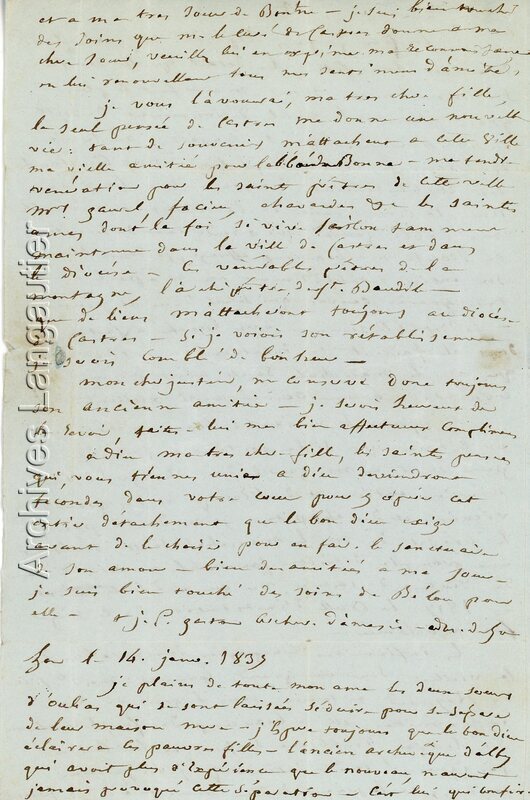 et a ma tres soeur de Bonne - je suis bien touché
des soins que mr le curé de Castres donne a ma
chere soeur, veuillez lui en exprimer ma reconnaissance
en lui renouvellant tous mes sentimens d'amitié,
je vous l'avouerai, ma tres chere fille,
la seul pensée de Castres me donne une nouvelle
vie: tant de souvenirs m'attachent a cete ville
ma vielle amitié pour l'abbé de Bonne - ma tendre
veneration pour les saints prêtres de cete ville
mrs gaurel, chavardes les saintes
ames dont la foi si vive
maintenue dans la ville de Castres et dans
le diocèse - les venerables prêtres de la
montagne, l'archiprêtre de st. Baudil -
de liens m'attacheront toujours au diocèse
Castres - si je voiois son rétablissement
serois comblé de bonheur -
mon cher justin, me conserve donc toujours
son ancienne amitié - je serois heureux de
le revoir, faites-lui mes bien affectueux complimens
adieu ma tres chere fille, les saintes pensées
qui, vous tiennes unies a dieu deviendront
fecondes dans votre coeur pour y opérer cet
entier détachement que le bon dieu exige
avant de le choisir pour en faire le sanctuaire
de son amour - bien des amitiés a ma soeur -
je suis bien touché des soins de Bélou pour
elle - + j. P. gaston archev. d'amasie - adm. de Lyon
Lyon le 14. janv. 1835
je plains de toute mon ame les deux soeurs
d'oulias qui se sont laissées séduire pour se séparer
de leur maison mere - j'espere toujours que le bon dieu
éclairera les pauvres filles - l'ancien archevêque d'alby
qui avoit plus d'Experience que le nouveau, n'auroit
jamais provoqué cette separation - c'est lui qui
Archives Langautier